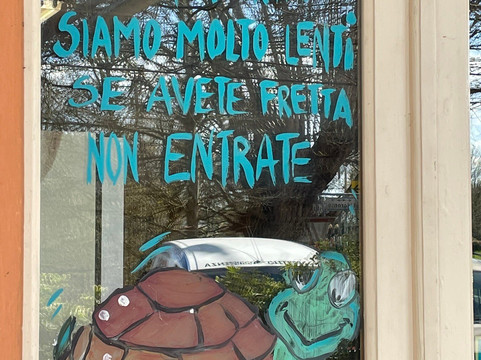 SIAMO MOLTO LENTI
SE AVETE FRETTA
NON ENTRATE